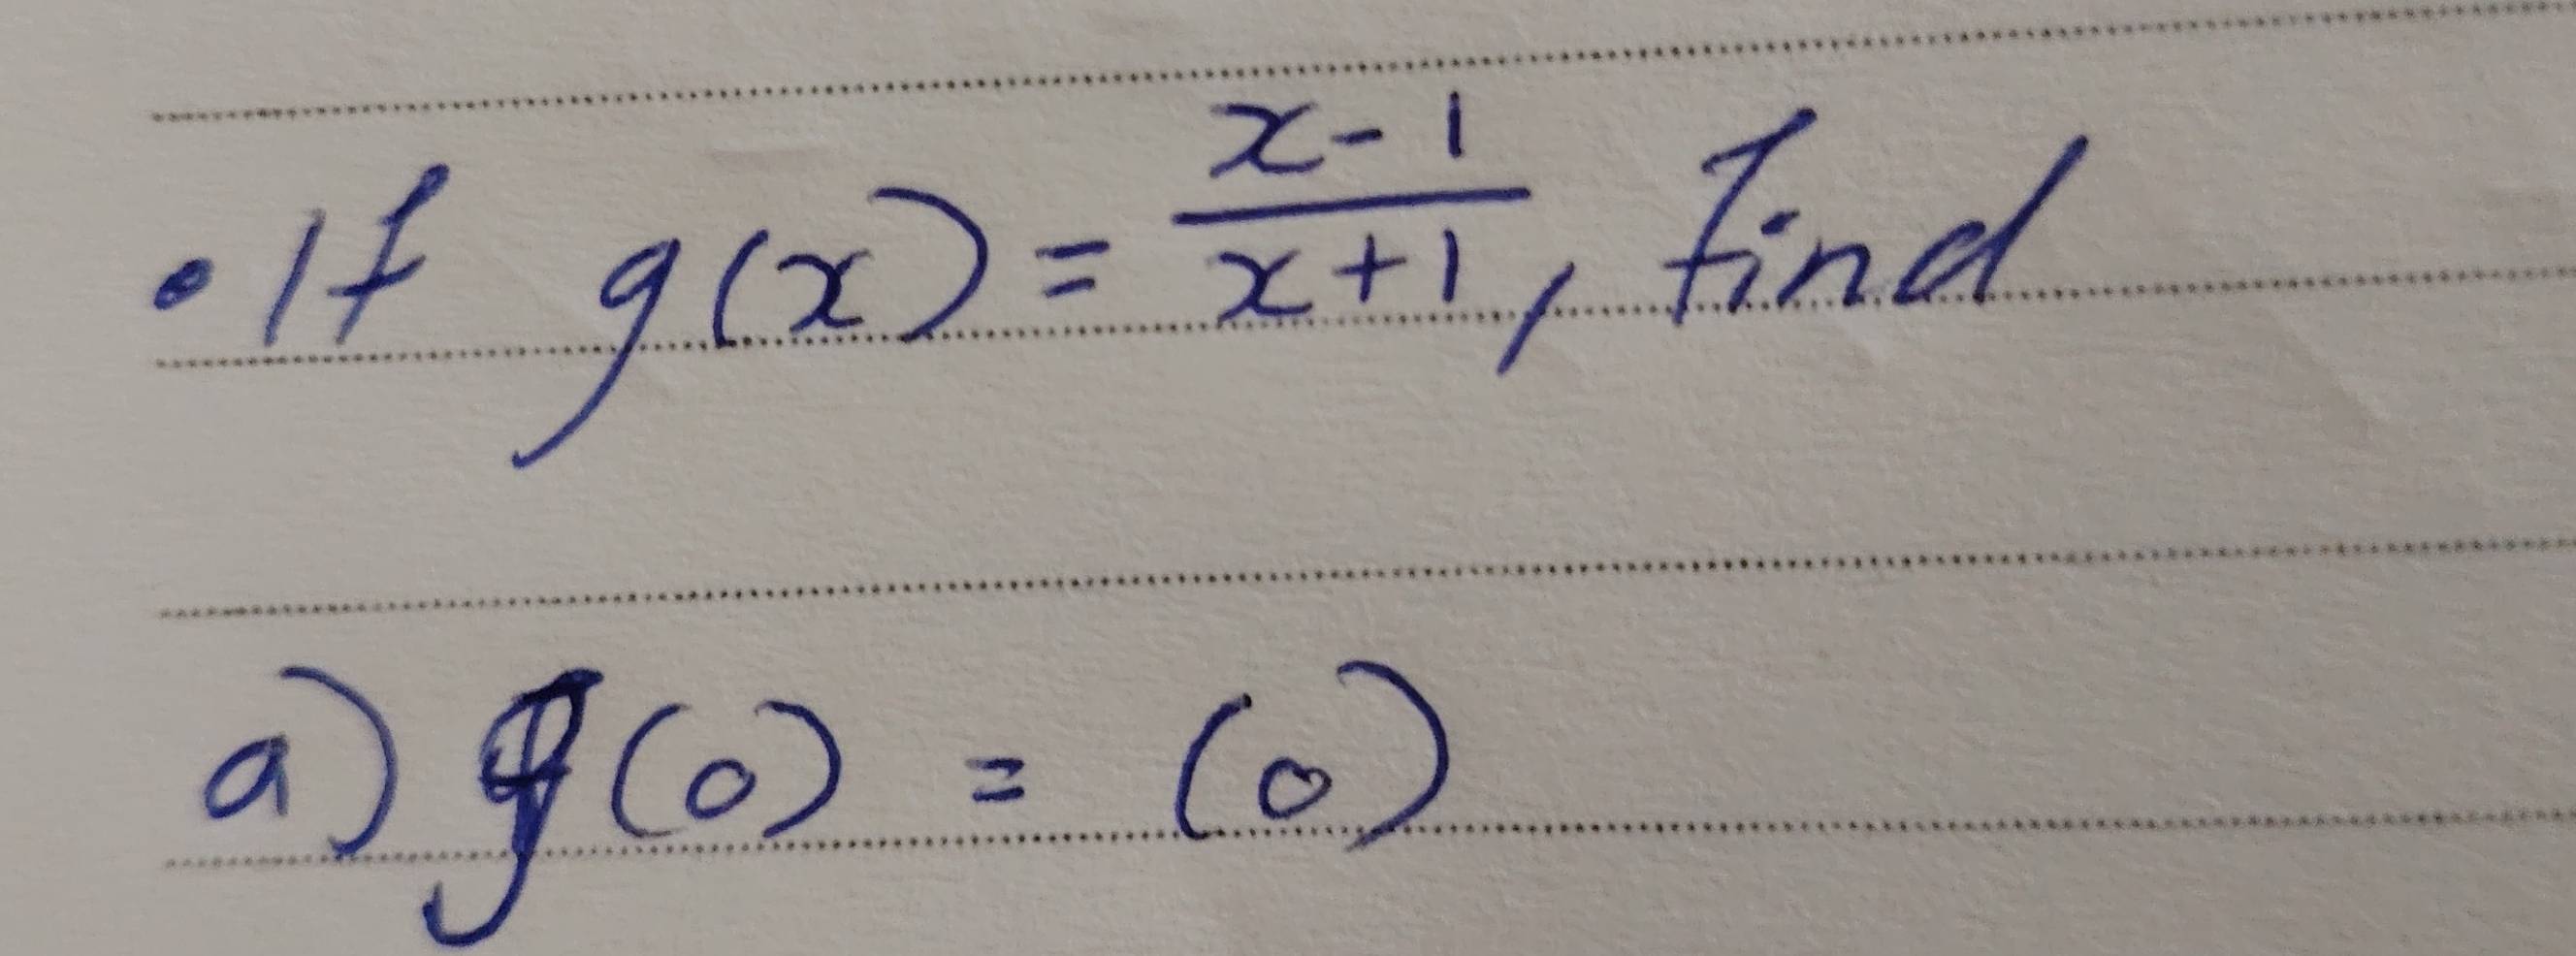 • If g(x) = \frac{x-1}{x+1}, find
a) g(0) = (0)